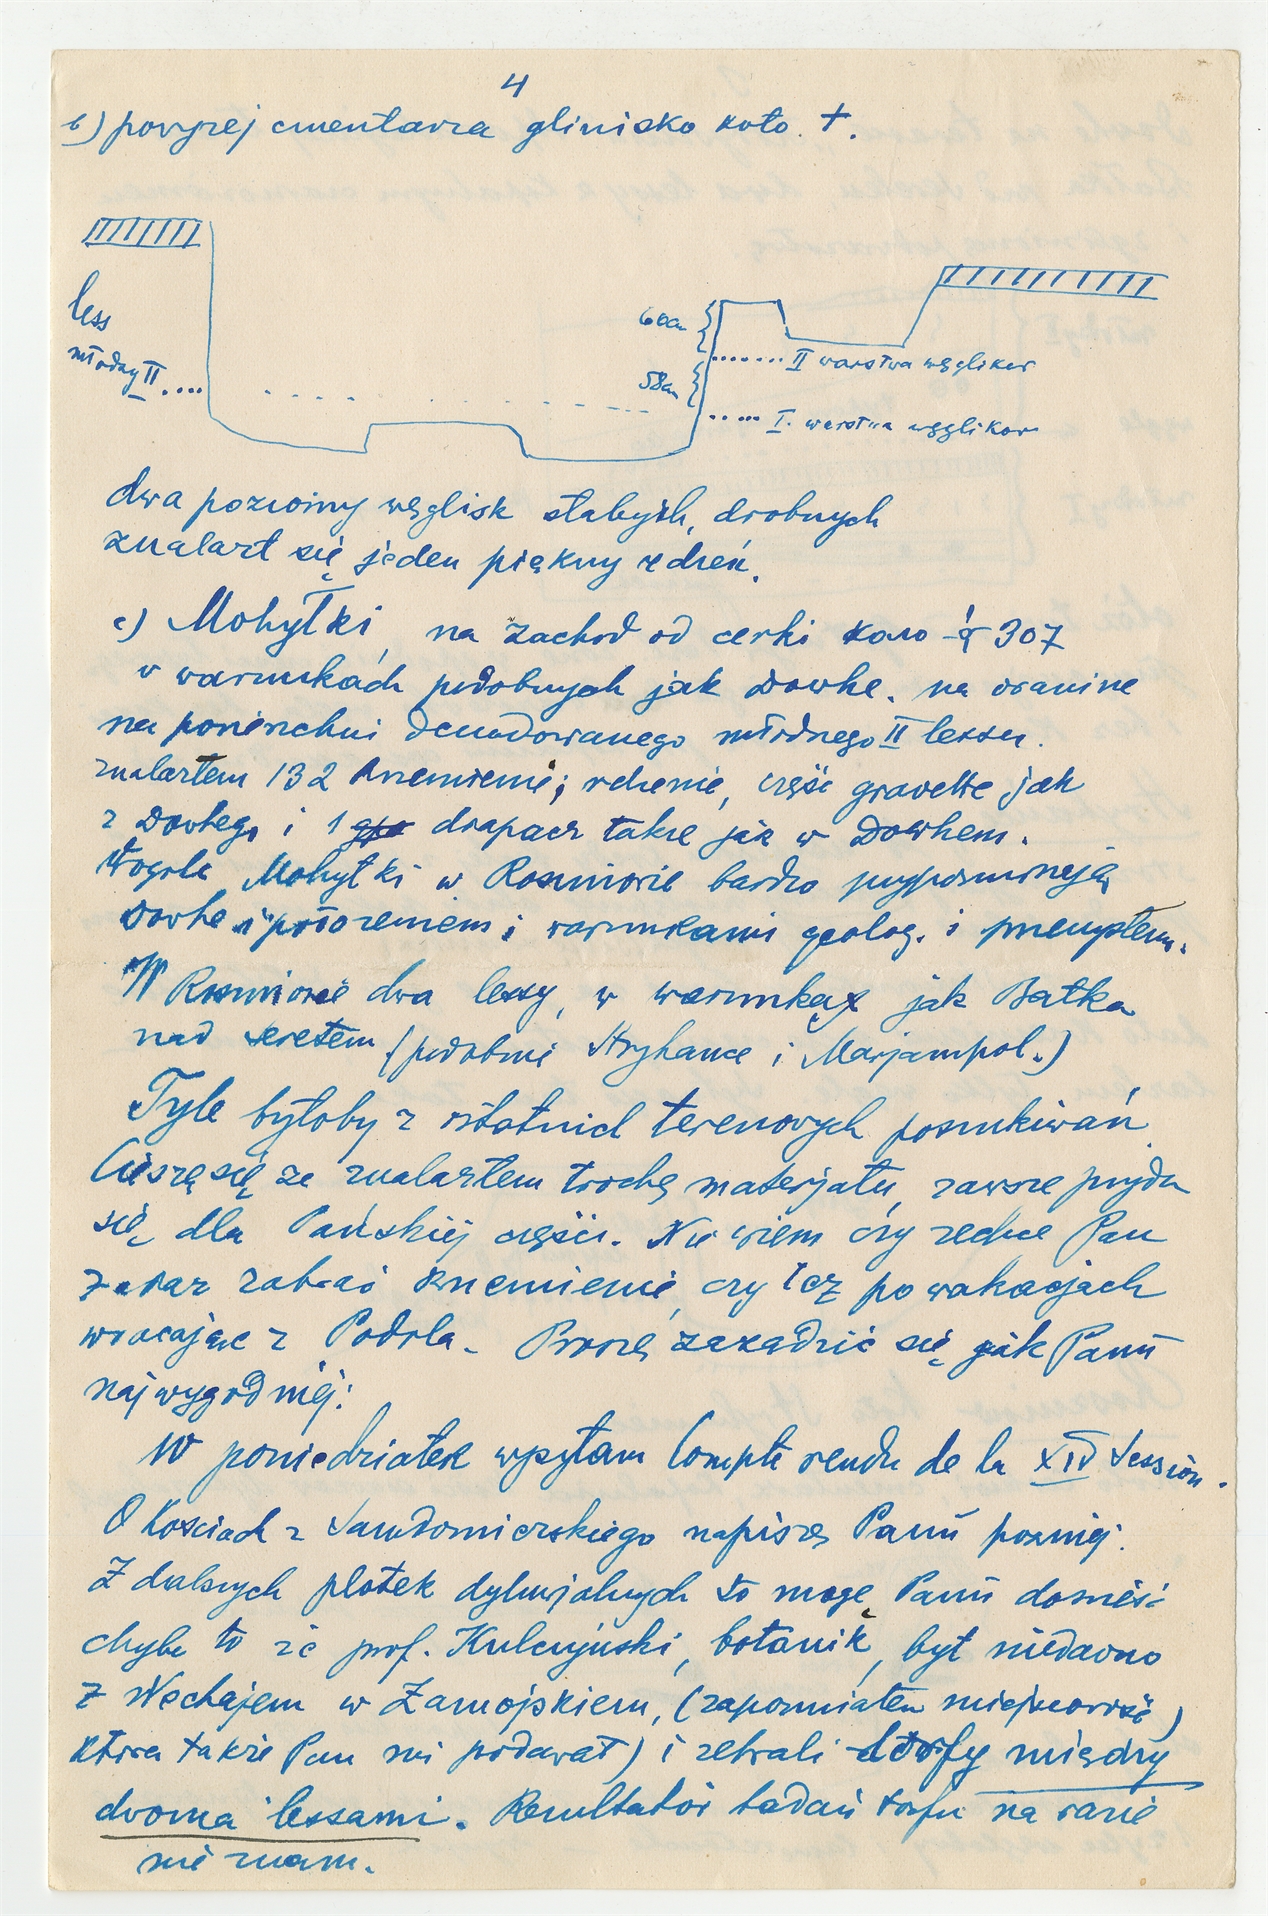 4
b) powyżej cmentarza glinisko koło. +.
less
młodszy II
60cm
II warstwa węglików
58cm
I. warstwa węglików
dwa poziomy węglisk słabych, drobnych
znalazł się jeden piękny rdzeń.
c) Mohyłki, na zachód od cerki koło 307
w warunkach podobnych jak Dowhe. na oraninie
na powierzchni denudowanego młodszego II lessu.
znalazłem 132 krzemieni; rdzenie, część gravette jak
z Dowhego i 1 drapacz takie jak w Dowhem.
Wogóle Mohyłki w Roszniowie bardzo przypominają
Dowhe i położeniem i warunkami geolog. i przemysłem.
W Roszniowie dwa lessy, w warunkax jak Batka
nad Seretem (podobnie Hryhance i Marjampol.)
Tyle byłoby z ostatnich terenowych poszukiwań.
Cieszę się że znalazłem trochę materjału, zawsze przyda
się dla Pańskiej części. Nie wiem czy zechce Pan
zaraz zabrać krzemienie, czy też po wakacjach
wracając z Podola. Proszę zarządzić się jak Panu
najwygodniej:
W poniedziałek wysyłam Compte rendu de la XIV Session.
O kościach z Sandomierskiego napiszę Panu pozniej.
Z dalszych plotek dyluwjalnych to mogę Panu donieść
chyba to że prof. Kulczyński, botanik, był niedawno
z Nechajem w Zamojskiem, (zapomniałem miejscowość)
która także Pan mi podawał) i zebrali torfy między
dwoma lessami. Rezultatów badań torfu na razie
nie znam.